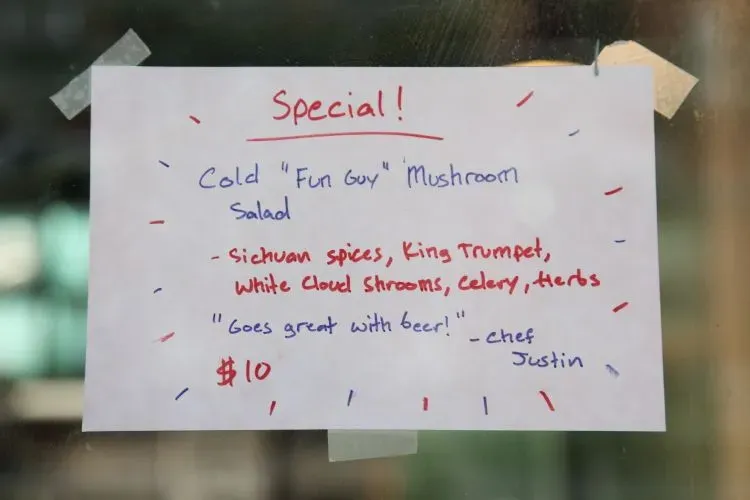 Special!
Cold "Fun Guy" Mushroom
Salad
- Sichuan spices, King Trumpet,
White Cloud Shrooms, Celery, Herbs
"Goes great with beer!" - Chef
Justin
$10